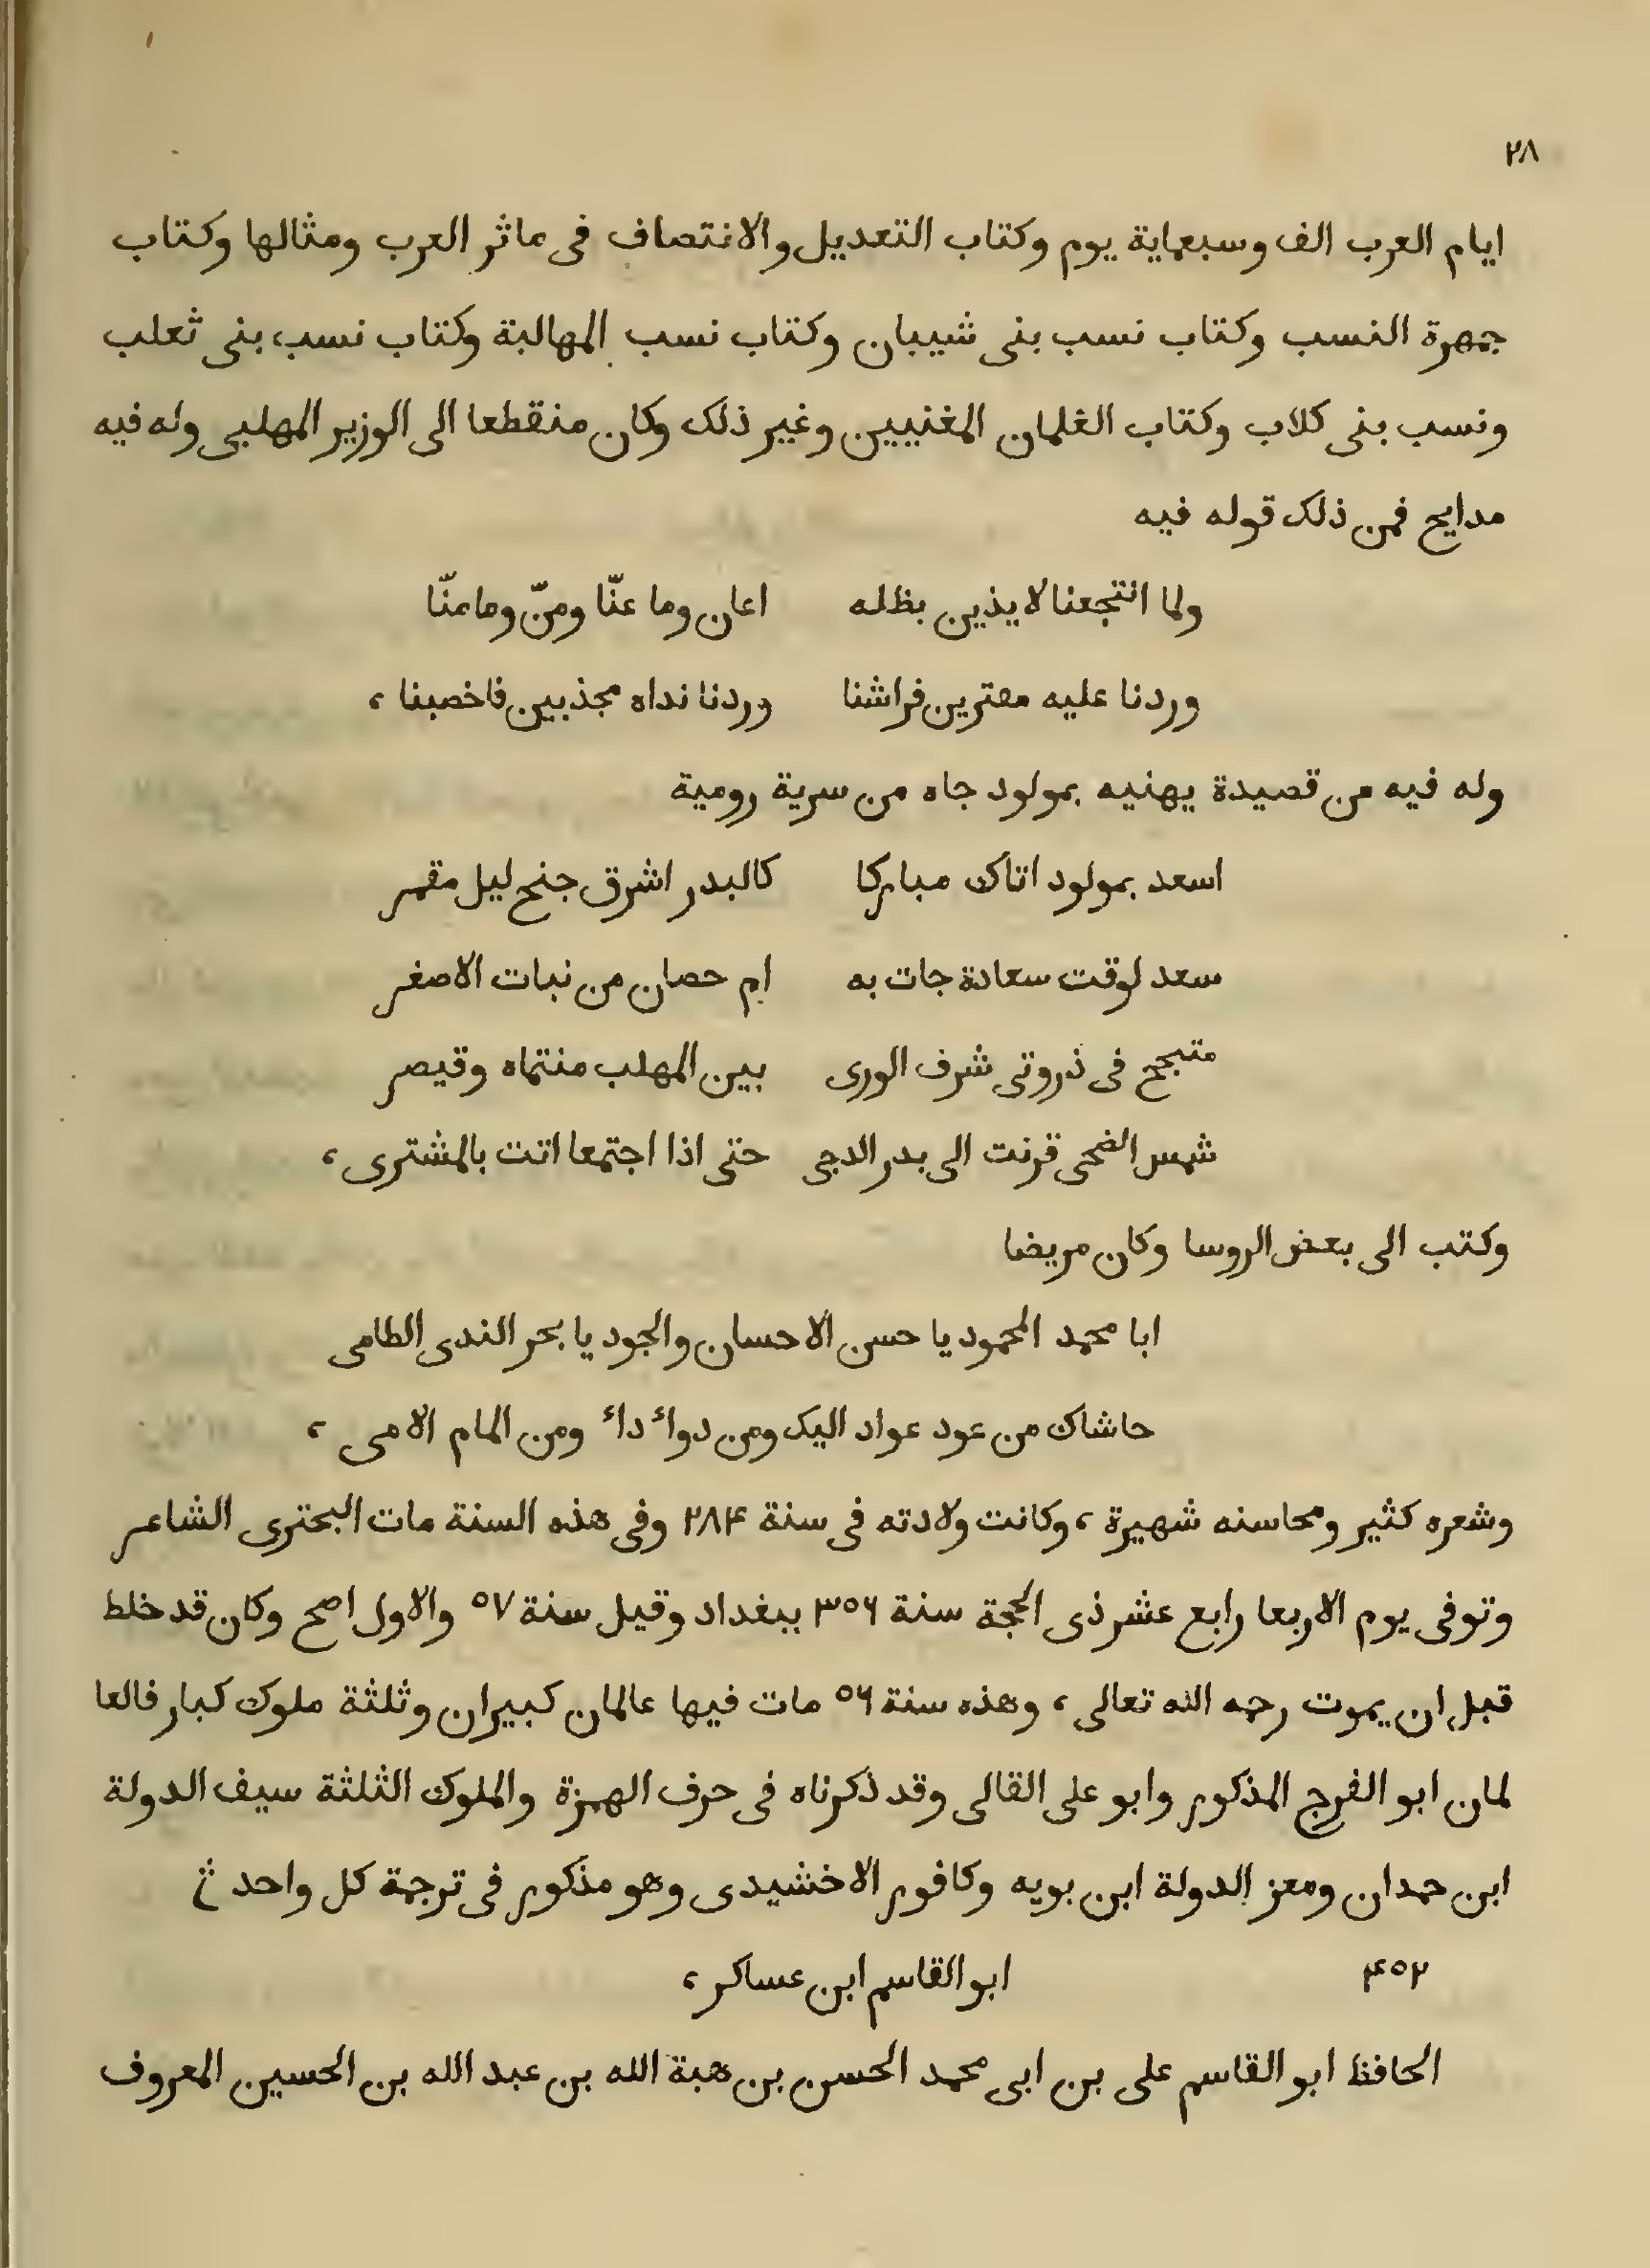 ٢٨
ايام العرب الف وسبعماية يوم وكتاب التعديل والانتصاف فى ماثر العرب ومثالها وكتاب
جمهرة النسب وكتاب نسب بنى شيبان وكتاب نسب المهالبة وكتاب نسب بنى ثعلب
ونسب بنى كلاب وكتاب الغلمان المغنيين وغير ذلك وكان منقطعا الى الوزير المهلبى وله فيه
مدايح فمن ذلك قوله فيه
ولما انتجعنا لايذين بظله اعان وما عنّا ومنّ وما منّا
وردنا عليه مقترين فراشنا وردنا نداه مجذبين فاخصبنا ،
وله فيه من قصيدة يهنيه بمولود جاه من سرية رومية
اسعد بمولود اتاك مباركا كالبدر اشرق جنح ليل مقمر
سعد لوقت سعادة جات به ام حصان من نبات الاصفر
متبجح فى ذروتى شرف الورى بين المهلب منتماه وقيصر
شمس الضحى قرنت الى بدر الدجى حتى اذا اجتمعا اتت بالمشترى ،
وكتب الى بعض الروسا وكان مريضا
ابا محمد المحمود يا حسن الاحسان والجود يا بحر الندى الطامى
حاشاك من عود عواد اليك ومن دواء داء ومن المام الامى ،
وشعره كثير ومحاسنه شهيرة ، وكانت ولادته فى سنة ٢٨۴ وفى هذه السنة مات البحترى الشاعر
وتوفى يوم الاربعا رابع عشر ذى الحجة سنة ٣٥٦ ببغداد وقيل سنة ٥٧ والاول اصح وكان قد خلط
قبل ان يموت رحمه الله تعالى ، وهذه سنة ٥٦ مات فيها عالمان كبيران وثلثة ملوك كبار فالعا
لمان ابو الفرج المذكور وابو على القالى وقد ذكرناه فى حرف الهمزة والملوك الثلثة سيف الدولة
ابن حمدان ومعز الدولة ابن بويه وكافور الاخشيدى وهو مذكور فى ترجمة كل واحد
۴٥٢ ابو القاسم ابن عساكر ،
الحافظ ابو القاسم على بن ابى محمد الحسن بن هبة الله بن عبد الله بن الحسين المعروف